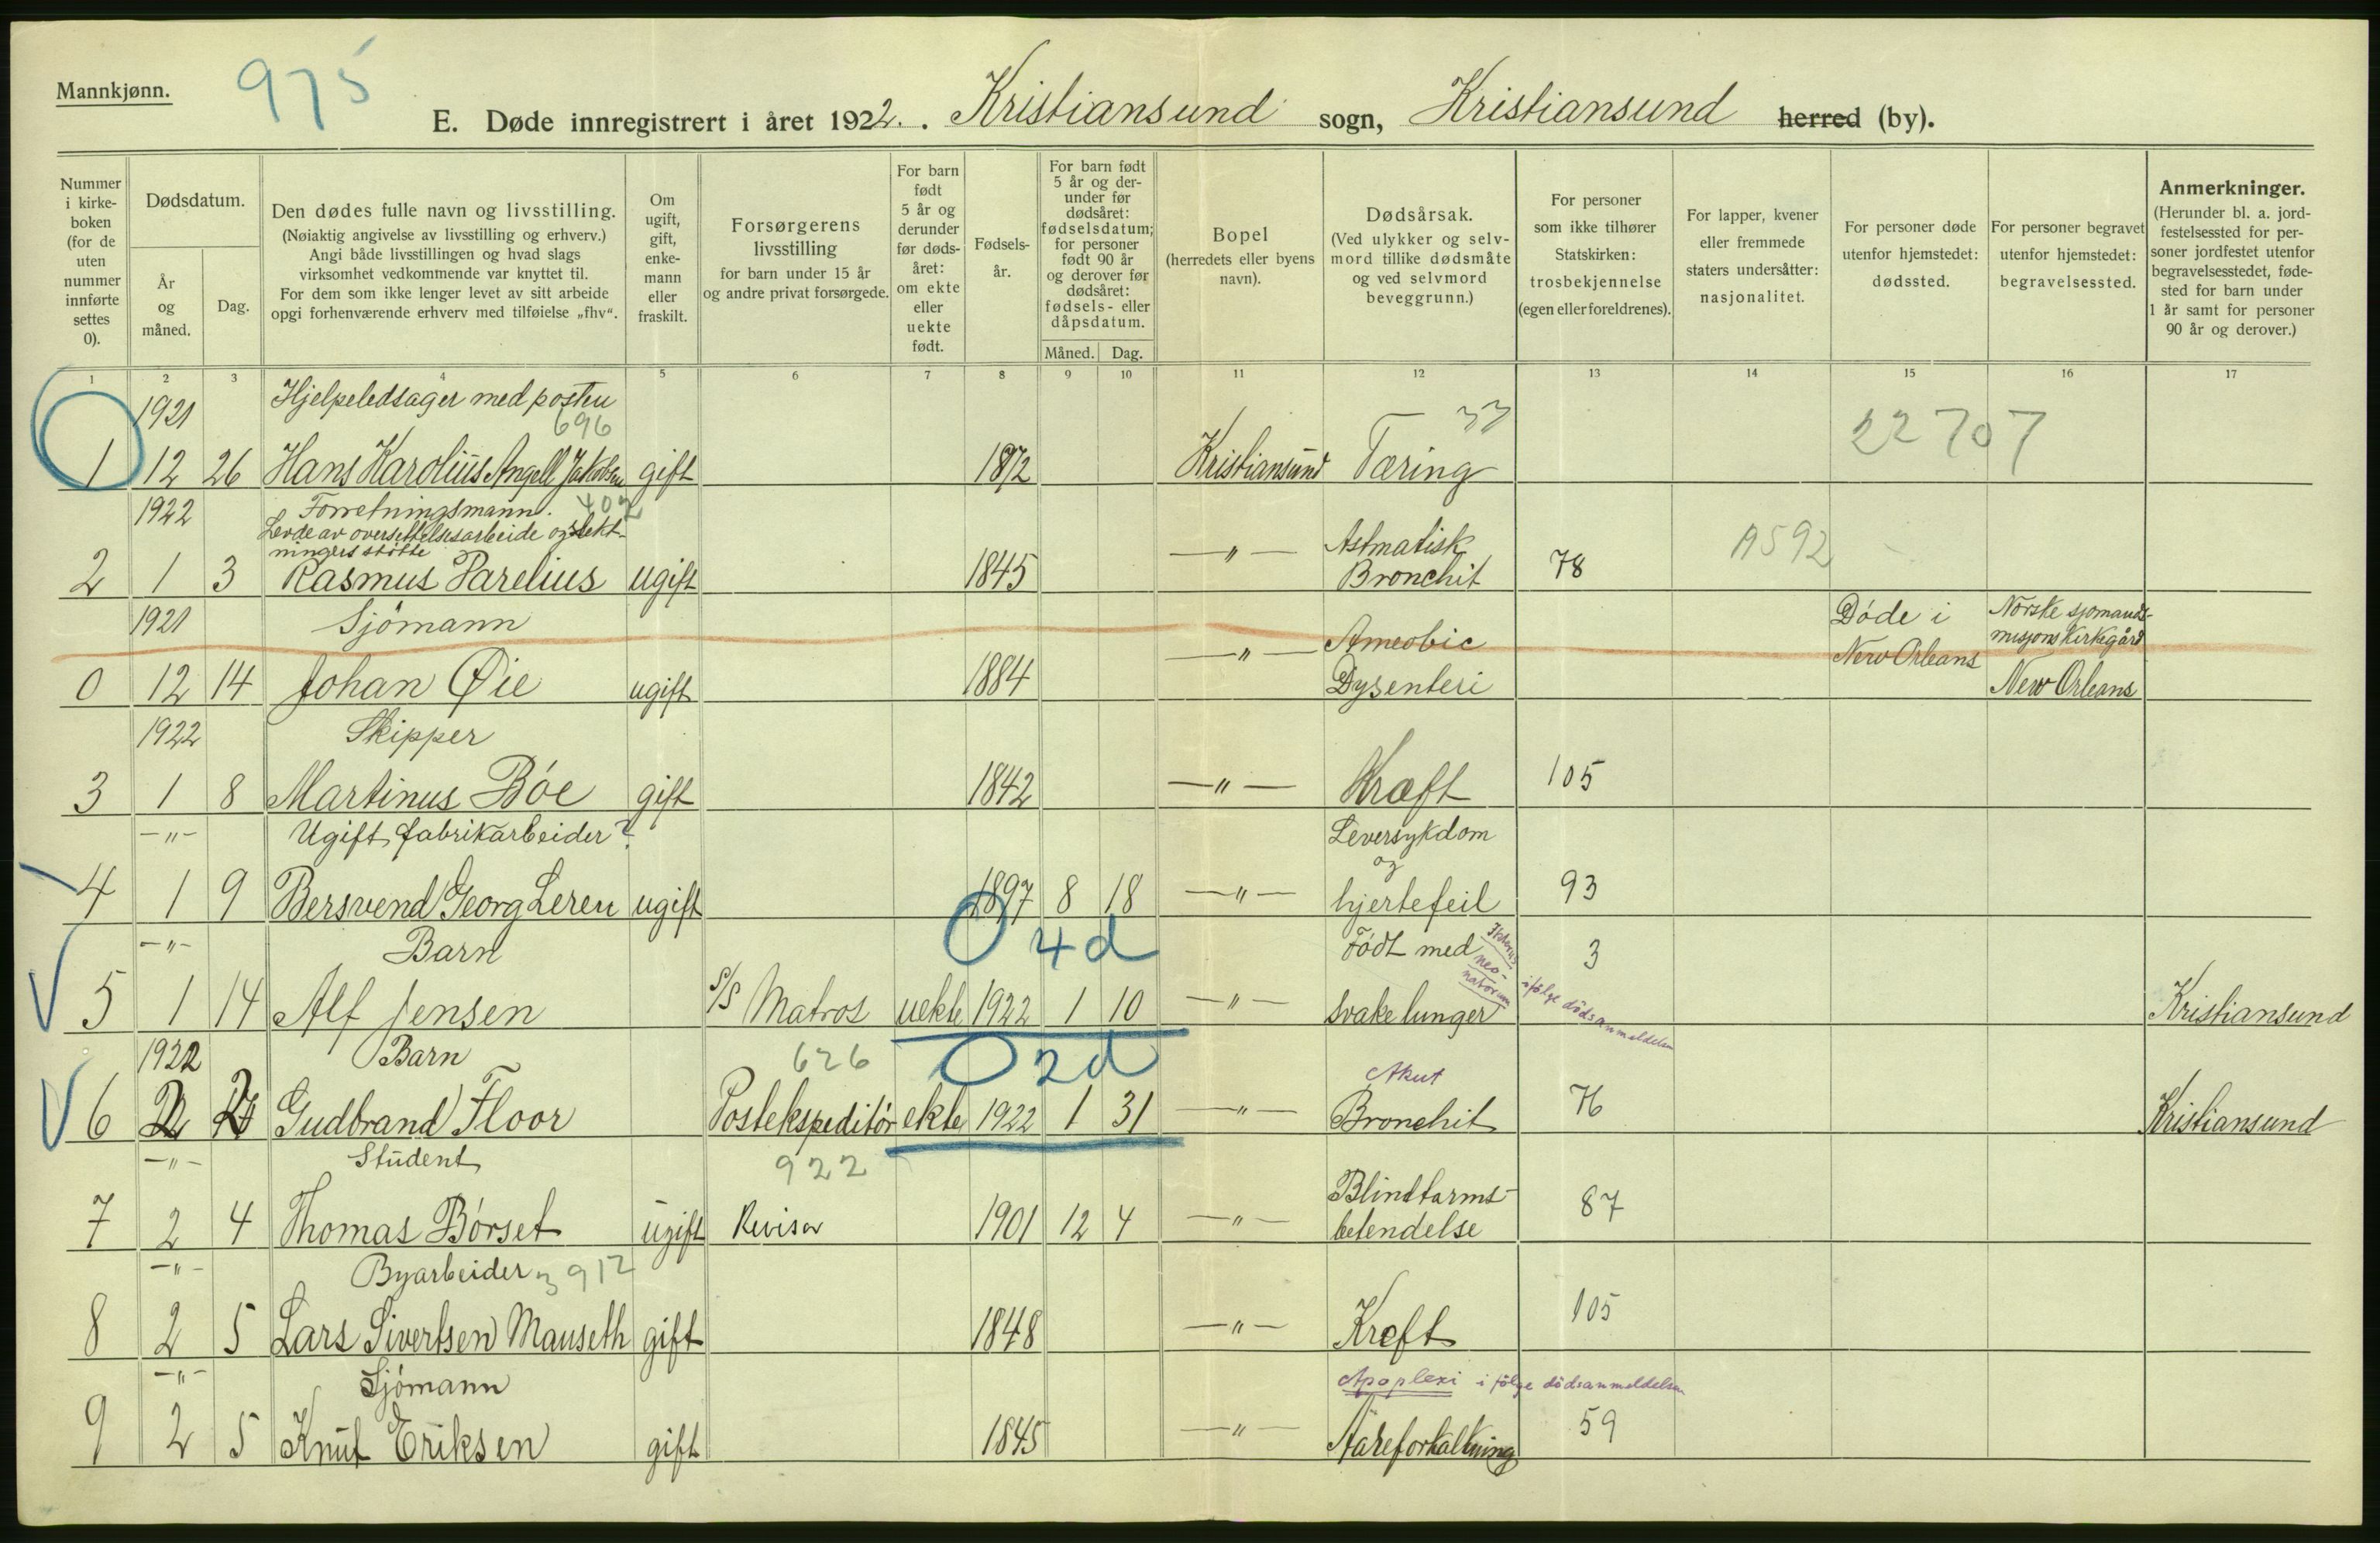 Mannkjønn.
975
E. Døde innregistrert i året 1922. Kristiansund sogn, Kristiansund herred (by).
Nummer i kirke-boken (for de uten nummer innførte settes 0).
Dødsdatum.
År og måned.
Dag.
Den dødes fulle navn og livsstilling.
(Nøiaktig angivelse av livsstilling og erhverv.)
Angi både livsstillingen og hvad slags
virksomhet vedkommende var knyttet til.
For dem som ikke lenger levet av sitt arbeide
opgi forhenværende erhverv med tilføielse „fhv“.
Om ugift, gift, enke-mann eller fraskilt.
Forsørgerens livsstilling
for barn under 15 år
og andre privat forsørgede.
For barn født 5 år og derunder før døds-året: om ekte eller uekte født.
Fødsels-år.
For barn født 5 år og der-under før dødsåret: fødselsdatum; for personer født 90 år og derover før dødsåret: fødsels- eller dåpsdatum.
Måned. Dag.
Bopel
(herredets eller byens navn).
Dødsårsak.
(Ved ulykker og selv-mord tillike dødsmåte og ved selvmord beveggrunn.)
For personer som ikke tilhører Statskirken: trosbekjennelse (egen eller foreldrenes).
For lapper, kvener eller fremmede staters undersåtter: nasjonalitet.
For personer døde utenfor hjemstedet: dødssted.
For personer begravet utenfor hjemstedet: begravelsessted.
Anmerkninger.
(Herunder bl. a. jord-festelsessted for per-soner jordfestet utenfor begravelsesstedet, føde-sted for barn under 1 år samt for personer 90 år og derover.)
1 2 3 4 5 6 7 8 9 10 11 12 13 14 15 16 17
1921 Hjelpeledsager med posten
696 33 22707
1 12 26 Hans Karolius Angell Jakobsen gift 1872 Kristiansund Tæring
1922 Forretningsmann. 402
Levde av oversettelsesarbeide og slekt-
ningers støtte
2 1 3 Rasmus Parelius ugift 1845 —"— Astmatisk Bronchit 78 A592
1921 Sjømann
0 12 14 Johan Øie ugift 1884 —"— Ameobic Dysenteri Døde i New Orleans Norske sjømands-misjons Kirkegård New Orleans
1922 Skipper
3 1 8 Martinus Bøe gift 1842 —"— Kræft 105
—"— Ugift fabrikarbeider?
4 1 9 Bersvend Georg Leren ugift 1897 8 18 —"— Leversykdom og hjertefeil 93
—"— Barn 4d
5 1 14 Alf Jensen S/S Matros uekte 1922 1 10 —"— Født med svake lunger Ikterus neo-natorum ifølge dødsanmeldelsen 3 Kristiansund
1922 Barn 626 2d
6 2 Gudbrand Floor Postekspeditør ekte 1922 1 31 —"— Akut Bronchit 76 Kristiansund
—"— Student 922
7 2 4 Thomas Børset ugift Revisor 1901 12 4 —"— Blindtarms-betendelse 87
—"— Byarbeider 3912
8 2 5 Lars Sivertsen Mauseth gift 1848 —"— Kreft 105
—"— Sjømann
Apoplexi i følge dødsanmeldelsen
9 2 5 Knut Eriksen gift 1845 —"— Aareforkalkning 59